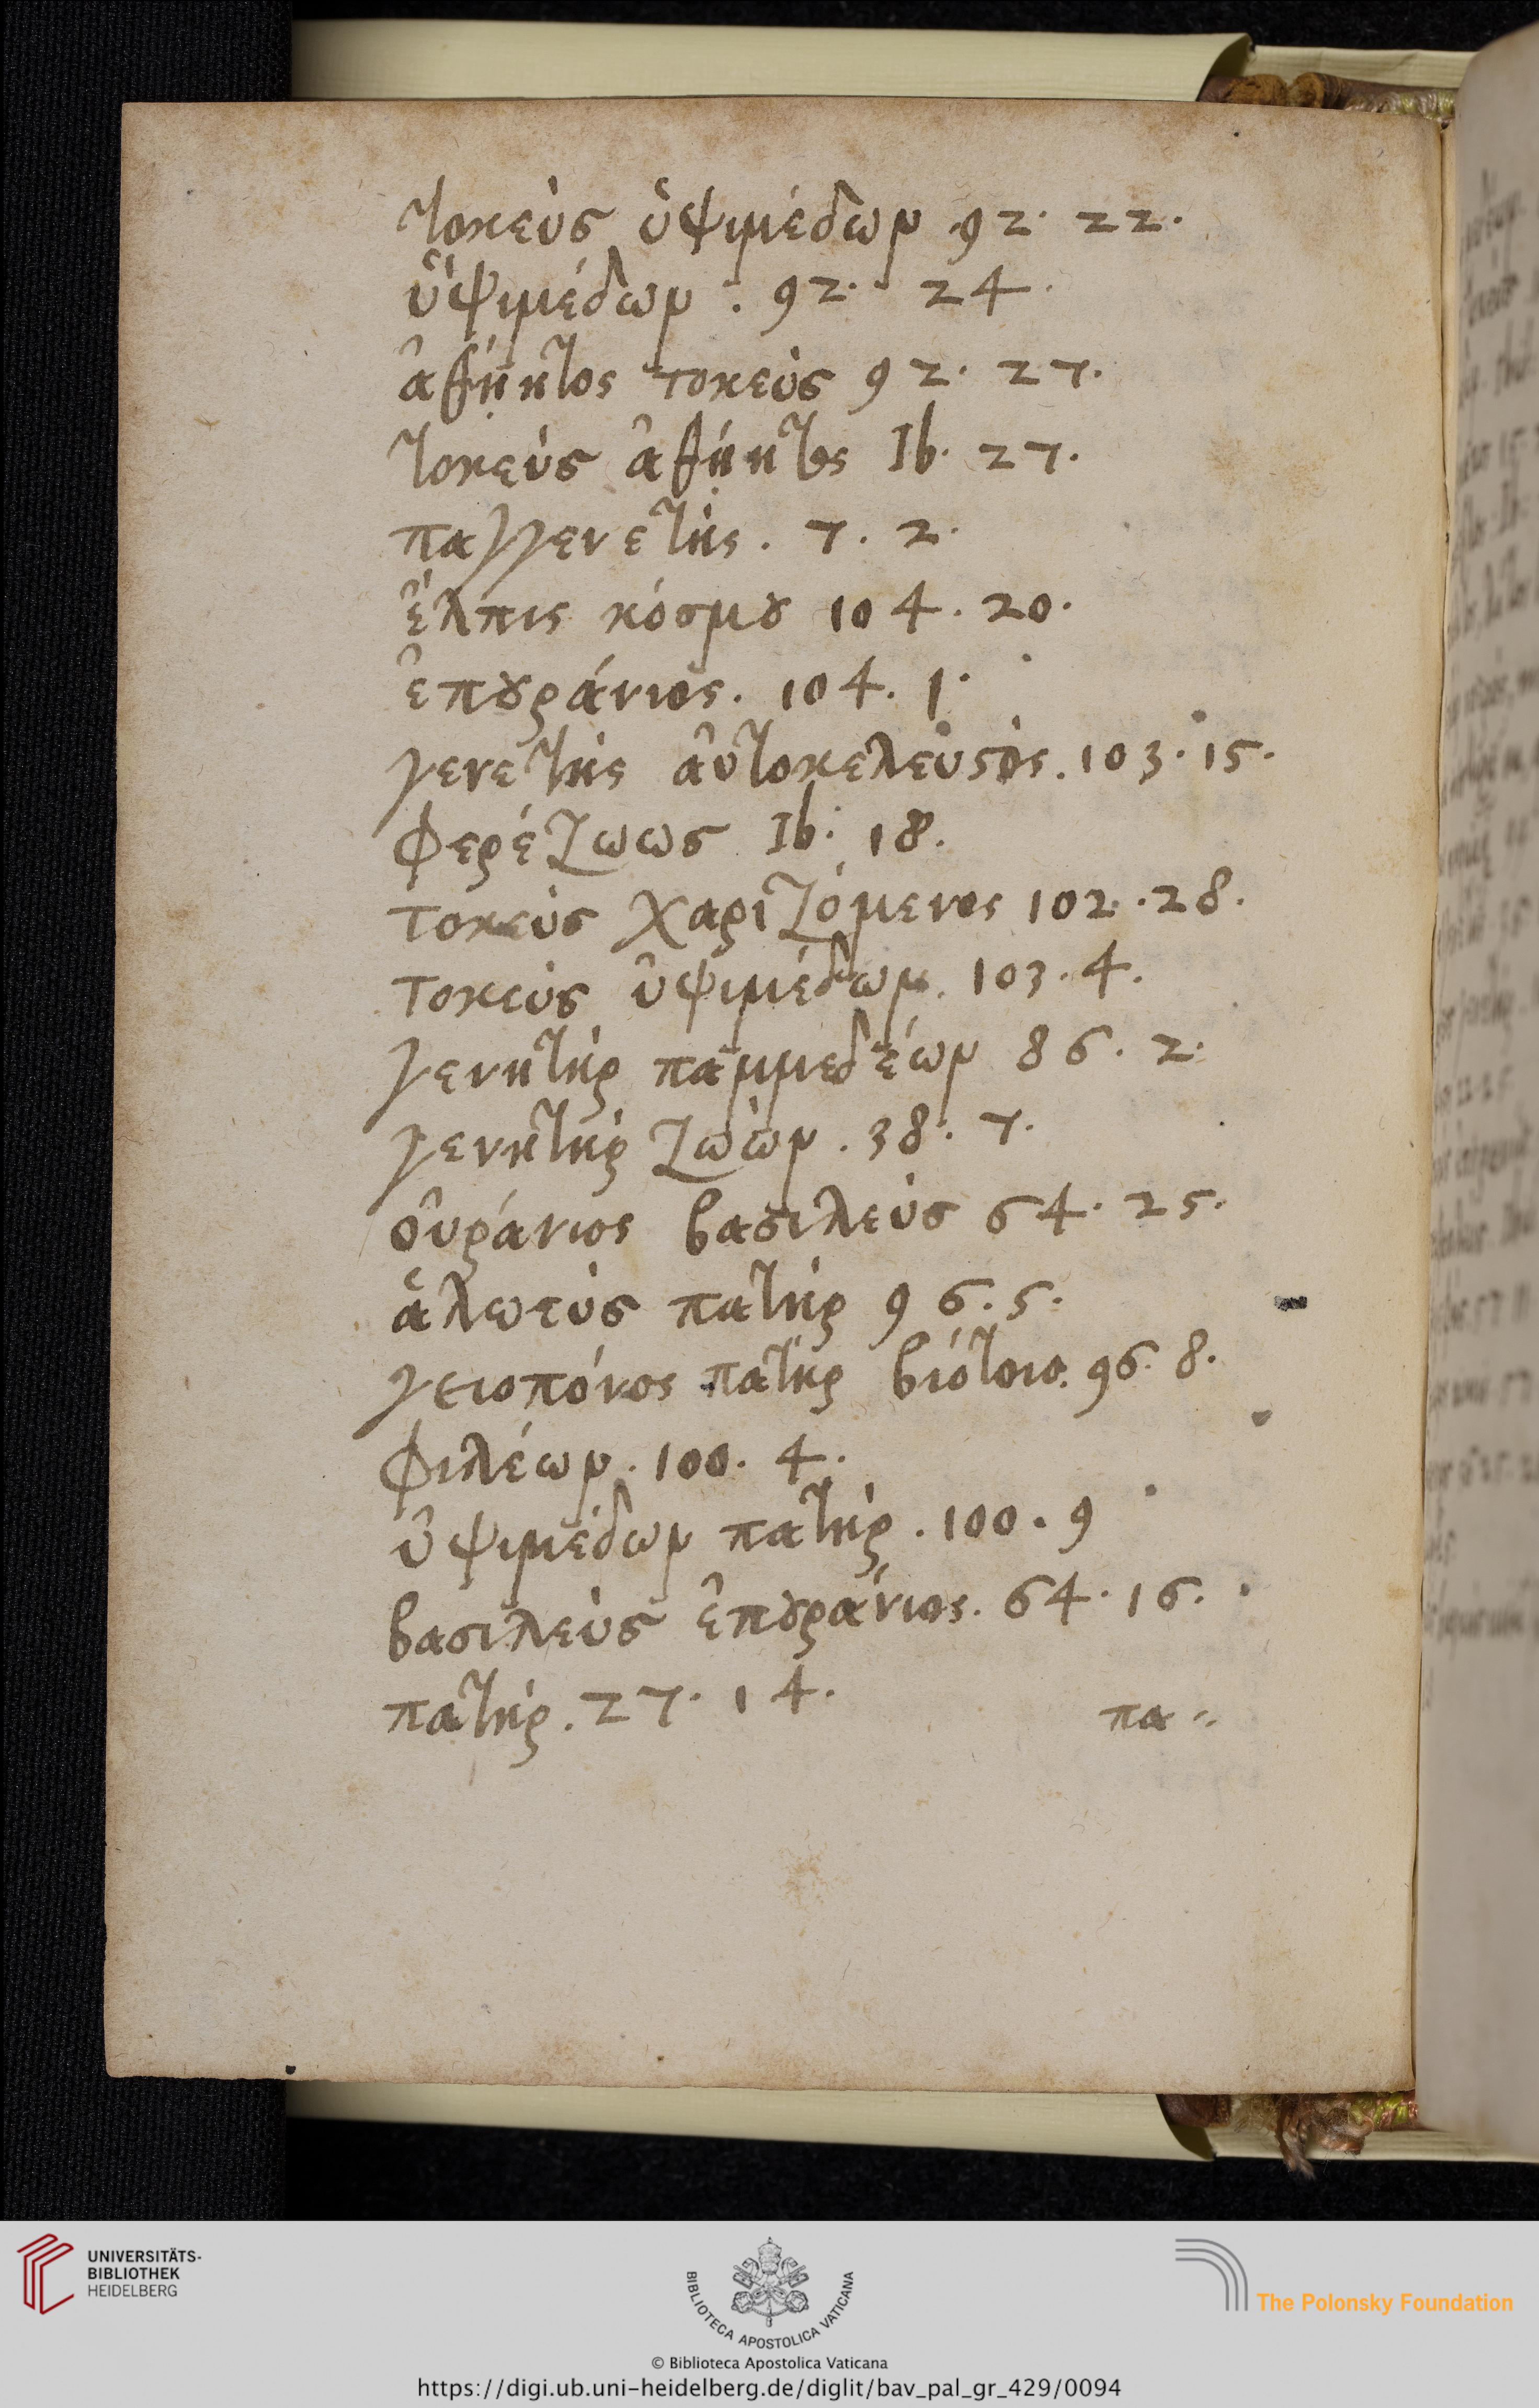 τοκεὺς ὑψιμέδων 92. 22.
ὑψιμέδων. 92. 24.
ἀθήητος τοκεὺς 92. 27.
τοκεὺς ἀθήητος Ib. 27.
παγγενετὴς. 7. 2.
ἐλπις κόσμου 104. 20.
ἐπουράνιος. 104. 1.
γενετὴς αὐτοκελευστὸς. 103. 15.
φερέζωως Ib. 18.
τοκεὺς χαριζόμενος 102. 28.
τοκεὺς ὑψιμέδων. 103. 4.
γενητὴρ παμμεδέων 86. 2.
γενητὴρ ζωὼν. 38. 7.
οὐράνιος βασιλεὺς 64. 25.
ἁλωτὺς πατὴρ 96. 5.
γειοπόνος πατὴρ βιότοιο. 96. 8.
φιλέων. 100. 4.
ὑψιμέδων πατὴρ. 100. 9
βασιλεὺς ἐπουράνιος. 64. 16.
πατὴρ. 27. 14.
πα
UNIVERSITÄTS-
BIBLIOTHEK
HEIDELBERG
BIBLIOTECA APOSTOLICA VATICANA
The Polonsky Foundation
© Biblioteca Apostolica Vaticana
https://digi.ub.uni-heidelberg.de/diglit/bav_pal_gr_429/0094